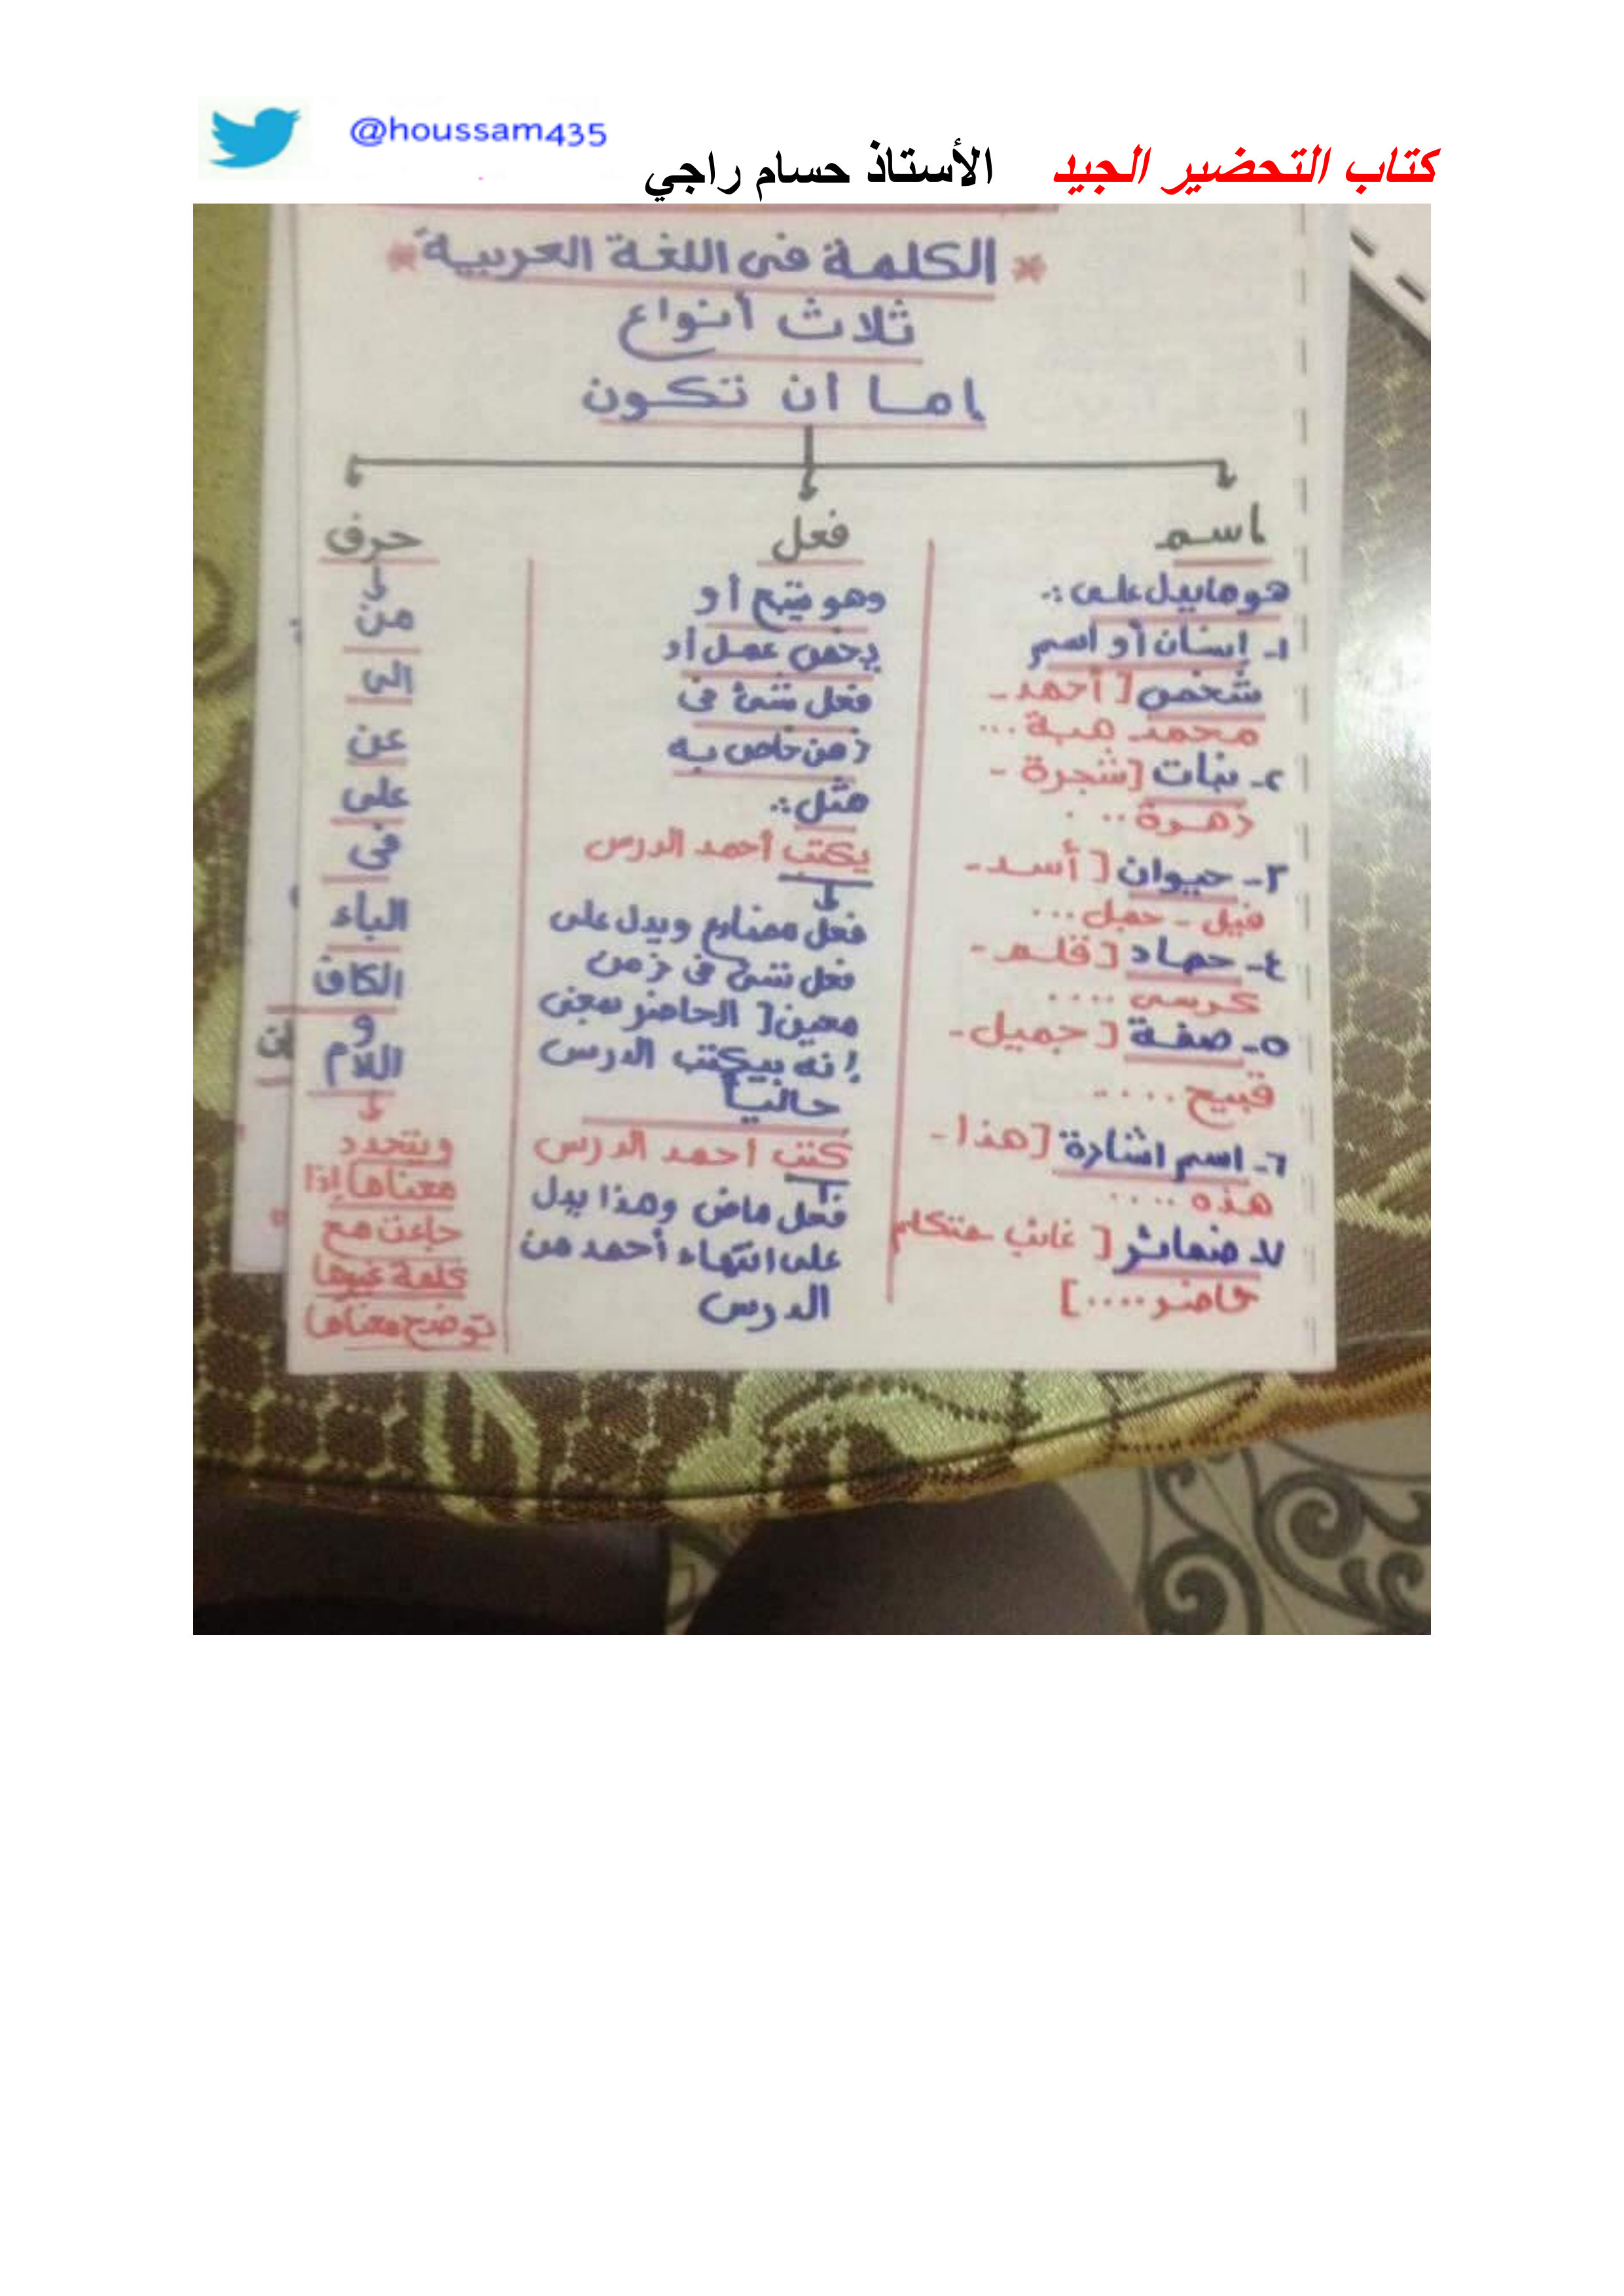 @houssam435
كتاب التحضير الجيد الأستاذ حسام راجي
* الكلمة فى اللغة العربية *
ثلاث أنواع
اما ان تكون
اسم
هو ما يدل على :-
١- إنسان أو اسم
شخص [ أحمد -
محمد هبة ...
٢- نبات [ شجرة -
زهرة ...
٣- حيوان [ أسد -
فيل - جمل ...
٤- جماد [ قلم -
كرسى ....
٥- صفة [ جميل -
قبيح ....
٦- اسم اشارة [ هذا -
هذه ....
٧- ضمائر [ غائب متكلم
حاضر .... ]
فعل
وهو أو
يخص عمل أو
فعل شئ فى
زمن خاص به
مثل :-
يكتب أحمد الدرس
فعل مضارع ويدل على
فعل شئ فى زمن
معين [ الحاضر بمعنى
إنه بيكتب الدرس
حالياً
كتب أحمد الدرس
فعل ماض وهذا يدل
على انتهاء أحمد من
الدرس
حرف
من
إلى
عن
على
فى
الباء
الكاف
و
اللام
ويتحدد
معناها إذا
جاءت مع
كلمة غيرها
توضح معناها